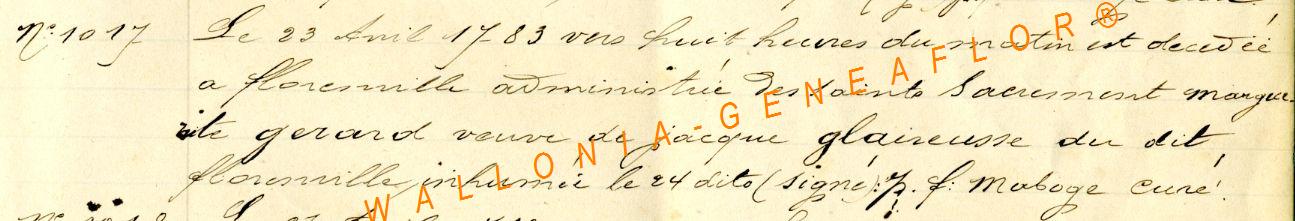 N° 1017 Le 23 Avril 1783 vers huit heures du matin est decedée
a florenville administrée des saints Sacrement margue-
rite gerard veuve de jacque glaireusse du dit
florenville, inhumée le 24 dito (signé): p. f: Maboge curé.
WALLONIA-GENEAFLOR®